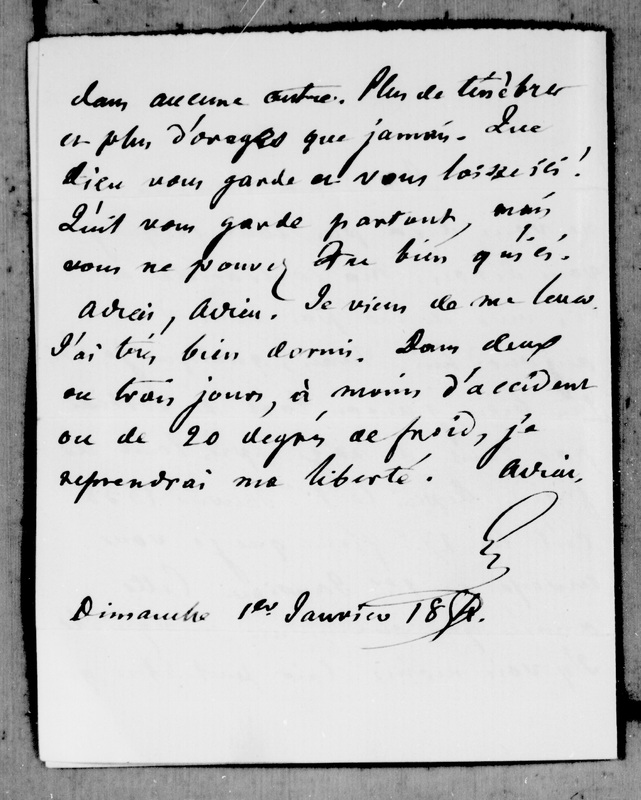 dans aucune autre. Plus de ténèbres
et plus d'orages que jamais. Que
dieu vous garde et vous laisse ici!
Qu'il vous garde partout, mais
vous ne pouvez être bien qu'ici.
Adieu, Adieu. Je viens de me lever.
J'ai très bien dormi. Dans deux
ou trois jours, à moins d'accident
ou de 20 degrés de froid, je
reprendrai ma liberté. Adieu,
Dimanche 1er Janvier 18